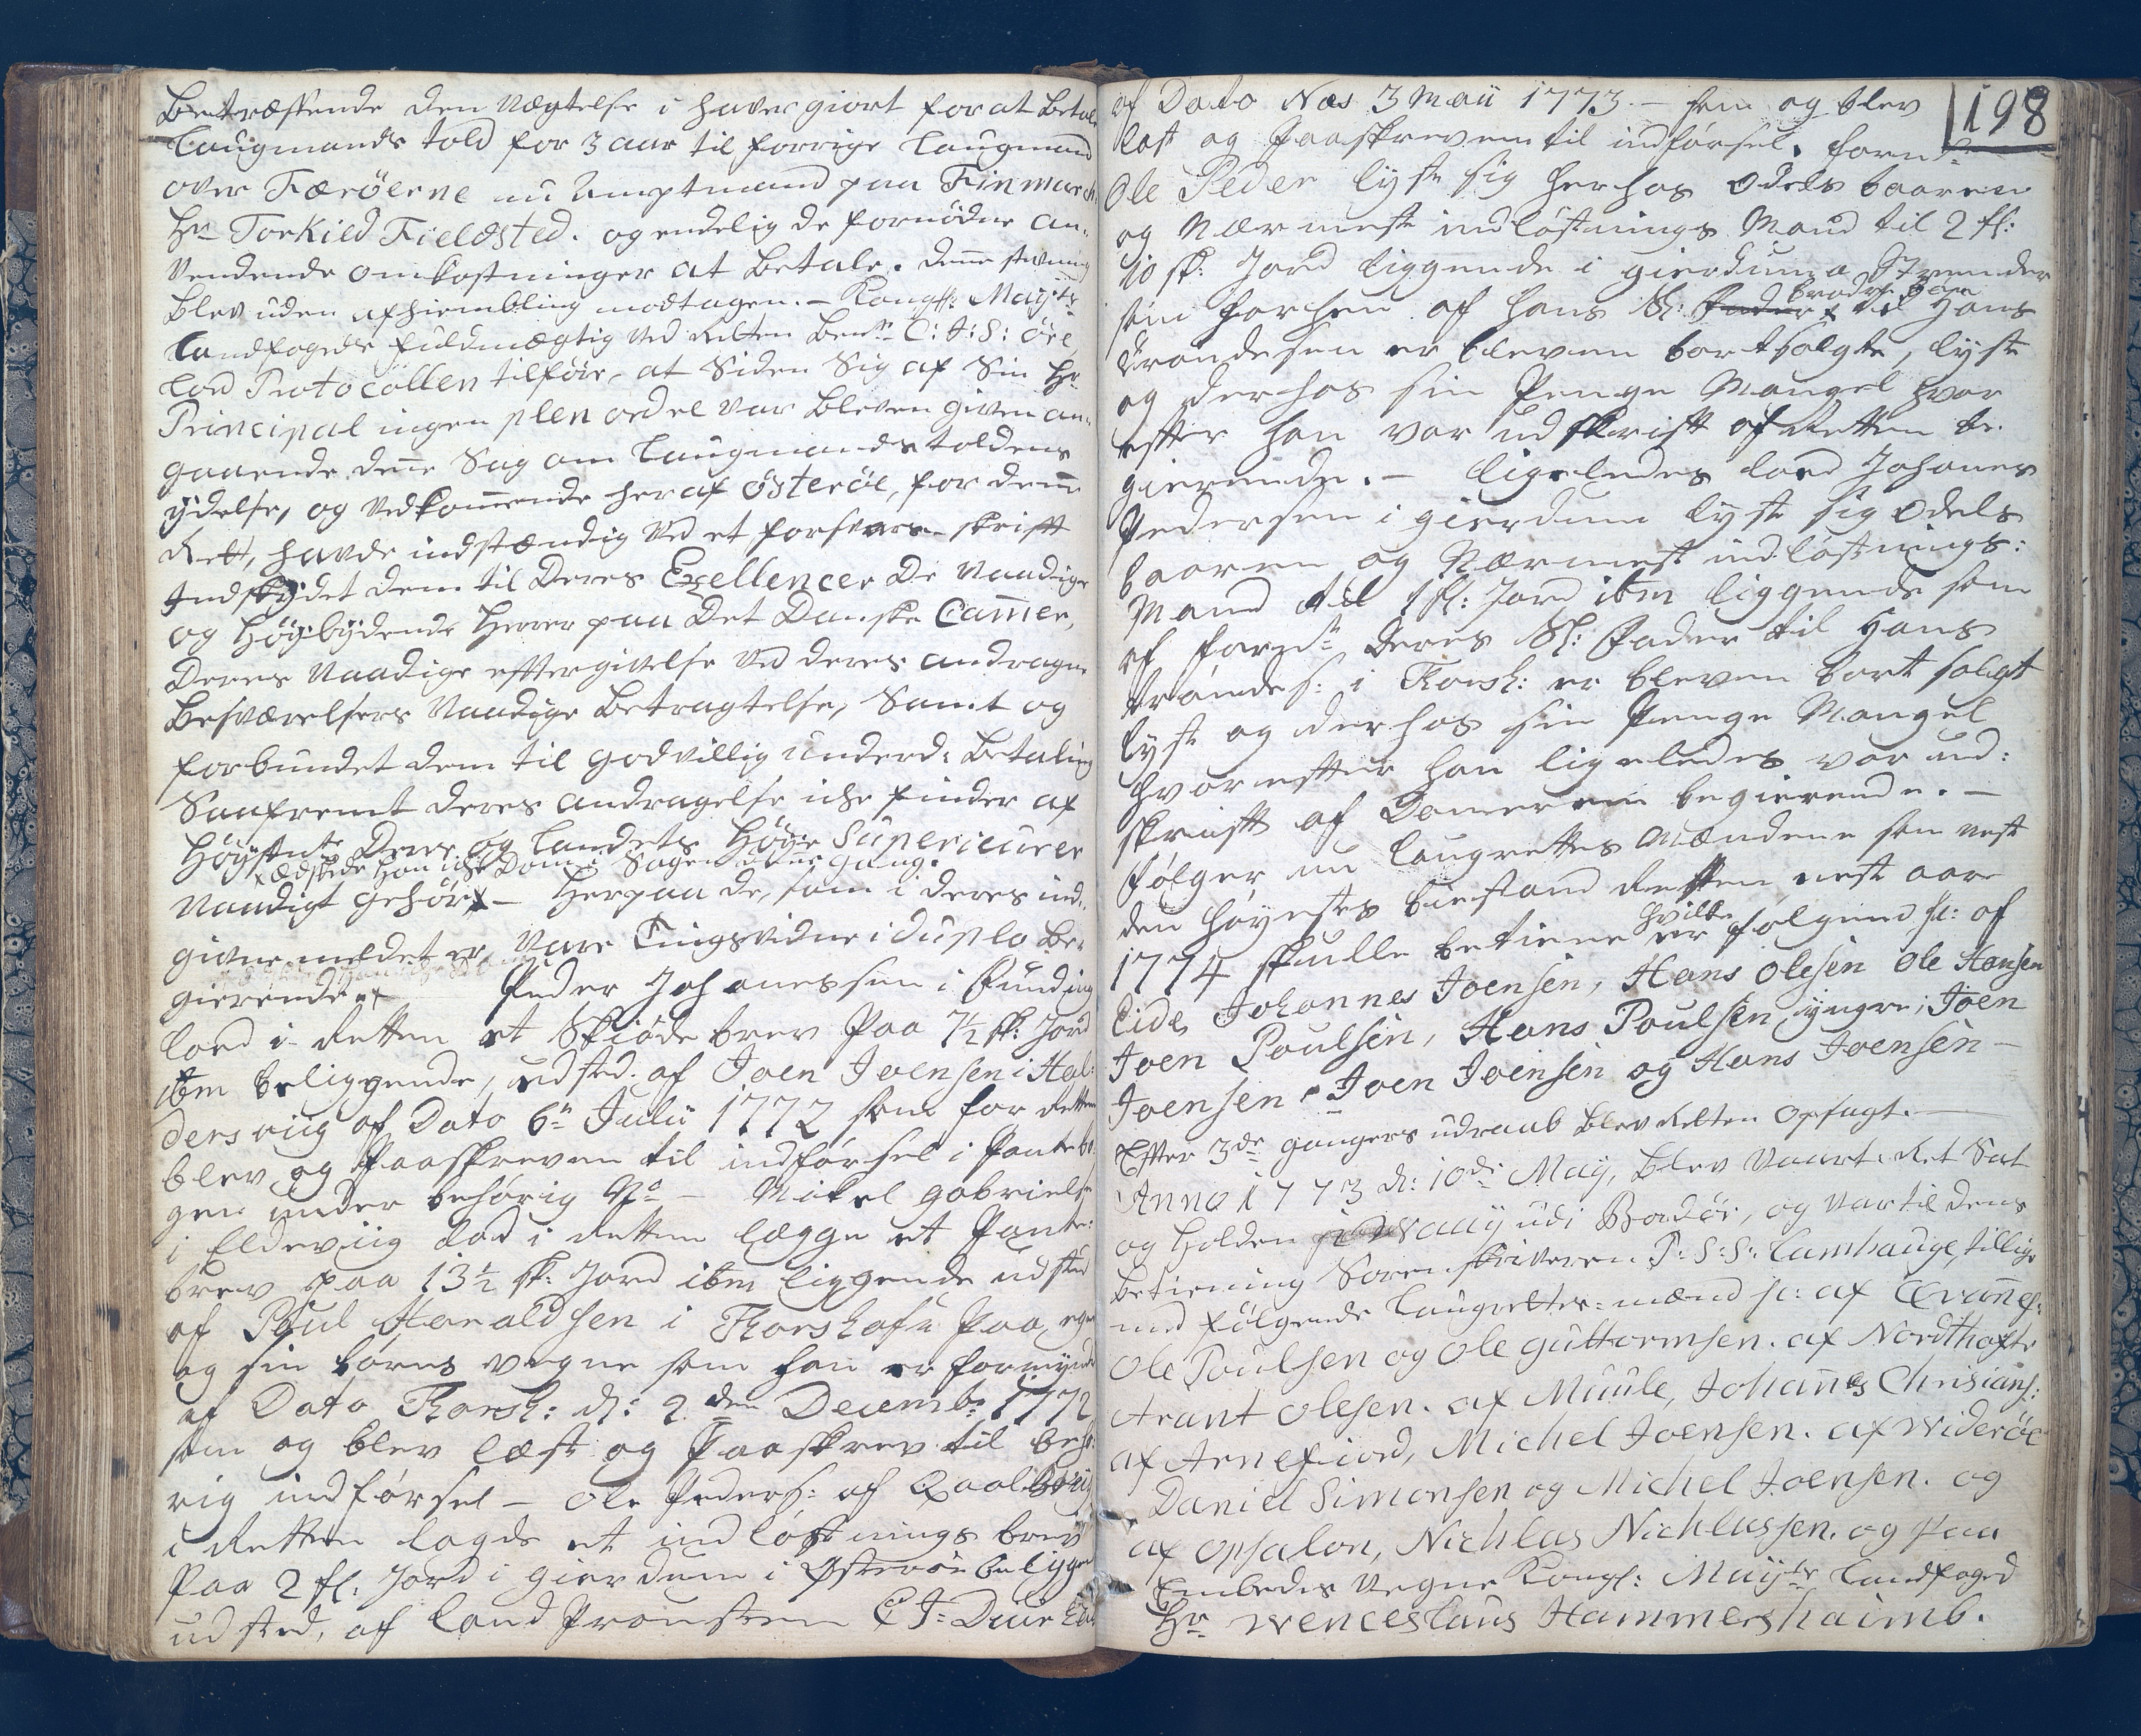 Betræffende den Nægtelse i haver giort for at Betale
Laugmands told for 3 aar til forrige Laugmand
over Færöerne nu Amptmand paa Finmarch.
Hr Torkild Fieldsted. og endelig de fornödne an-
vendende omkostninger at Betale. denne stevning
blev uden afhiembling modtagen. – Kongl: Mayts
Landfogeds fuldmægtig ved Retten Bemte C: I: S: öre
lod Protocollen tilföie, at Siden Sig af Sin Hr
Principal ingen plen ordel var bleven given an-
gaaende denne Sag om Laugmands toldens
ydelse, og vedkommende heraf österöe, for denne
Rett, havde indstændig ved et forsvars skrifft
Indskydet dem til Deres Exellencer De Naadige
og Höybydende Herrer paa Det Danske Cammer,
Deres Naadige efftergivelse ved deres andragne
Besværelsers Naadige Betragtelse, Samt og
forbundet dem til godvillig underd: Betaling
Saafremt deres andragelse iche finder af
Höystnte Deres og Landets Höye Superieurer
x ædskede han iche Dom i Sagen denne gang.
Naadigt gehör x – Herpaa de, som i deres ind-
givne meldet er, vare Tingsvidne i duplo Be-
gierende.
Peder Johanessen i Funding
loed i Retten et Skiöde brev Paa 7½ sk: Jord
ibm beliggende, udsted. af Joen Joensen i Hal-
dersviig af Dato 6te Julii 1772 som for Retten
blev og Paaskreven til indförsel i Pantebo-
gen under behörig No – Mikel Gabriels:
i Eldeviig lod i Retten lægge et Pante-
brev paa 13½ sk: Jord ibm liggende udsted
af Poul Haraldsen i Thorshafn Paa egen
og sin börns vegne som han er formynder
af Dato Thorsh: d: 2den Decembr 1772
som og blev læst og Paaskrev til behö-
rig indförsel – Ole Peders: af
i Retten lagde et indlösnings brev
Paa 2 fl: Jord i gierdum i Österöe beligge
udsted, af Land Prousten C I: Duir
af Dato Næs 3 Maii 1773. – som og blev
læst og Paaskreven til indförsel. fornte
Ole Peder lyste sig herhos Odels baaren
og Nærmeste indlösnings Mand til 2 fl:
10 sk: Jord liggende i gierdum a Strender
broders börn
som forhen af hans Sl: Fader x til Hans
Trondesen er bleven bortsolgte, lyste
og derhos sin Penge Mangel hvor
effter han var udskrifft af Retten be-
gierende. – ligeledes loed Johanes
Pedersen i gierdum lyste sig Odels
baaren og Nærmest indlösnings:
Mand til 1 fl: Jord ibm liggende som
af fornte Deres Sl: Fader til Hans
Trondes: i Thorsh: er bleven bort solgt
lyst og derhos sin Penge Mangel
hvoreffter han ligeledes var ud:
skrifft af Domeren begierende. –
Fölger nu Laugrettes Mændene som nest
den höyestes bistand Retten nest aar
1774 skulle betiene hvilke er fölgend sc: af
Eide Johannes Joensen, Hans Olesen Ole Hansen
Joen Poulsen, Hans Poulsen yngre; Joen
Joensen, Joen Joensen og Hans Joensen –
Effter 3de gangers udraab blev Retten opsagt. –
Anno 1773 d: 10de May, blev Vaart: Ret Sat
og Holden i Waaij udi Bordöe, og var til dens
betiening Sorenskriveren P: S: S: Lamhauge, tillige
med fölgende Laugrettes-mænd sc: af Qvannes:
Ole Poulsen og Ole Guttormsen. af Nordthofte
Arant Olesen. af Muule, Johannes Chrisians:
af Arnefiord, Michel Joensen. af Wideröe
Daniel Simonsen og Michel Joensen. og
af opsalon, Nichlas Nichlassen. og paa
Embeds Vegne Kongl: Mayts Landfoged
Hr Wenceslaus Hammershaimb.
198